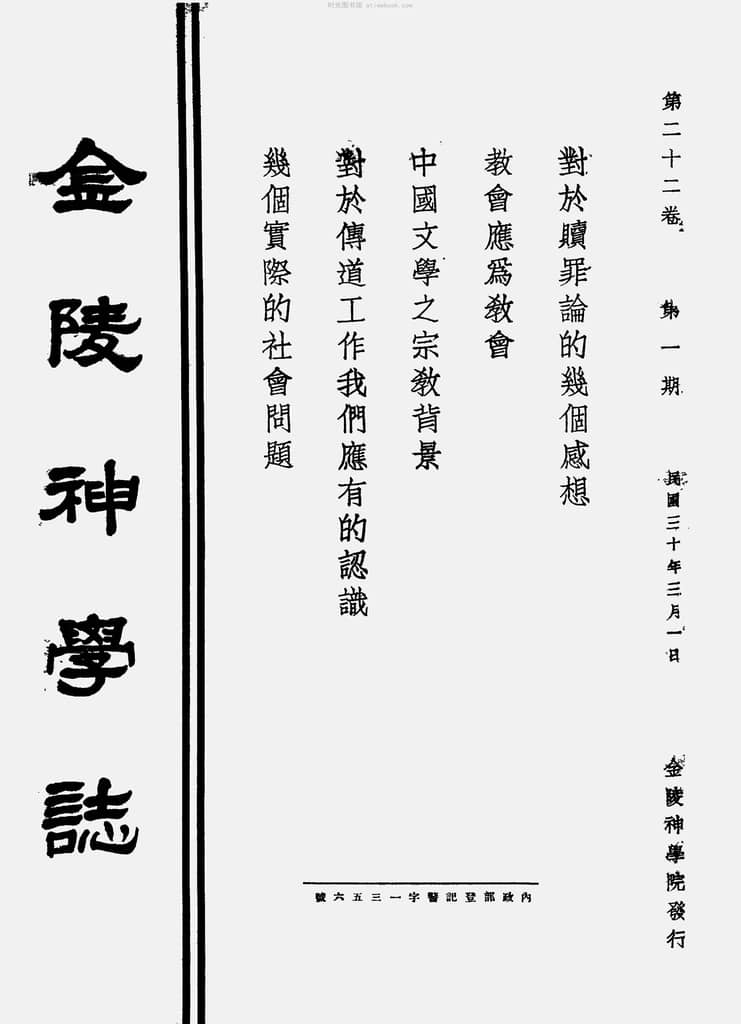 时光图书馆 atimebook.com
第二十二卷 第一期 民國三十年三月一日 金陵神學院發行
對於贖罪論的幾個感想
教會應爲教會
中國文學之宗教背景
對於傳道工作我們應有的認識
幾個實際的社會問題
內政部登記警字一三五六號
金陵神學誌